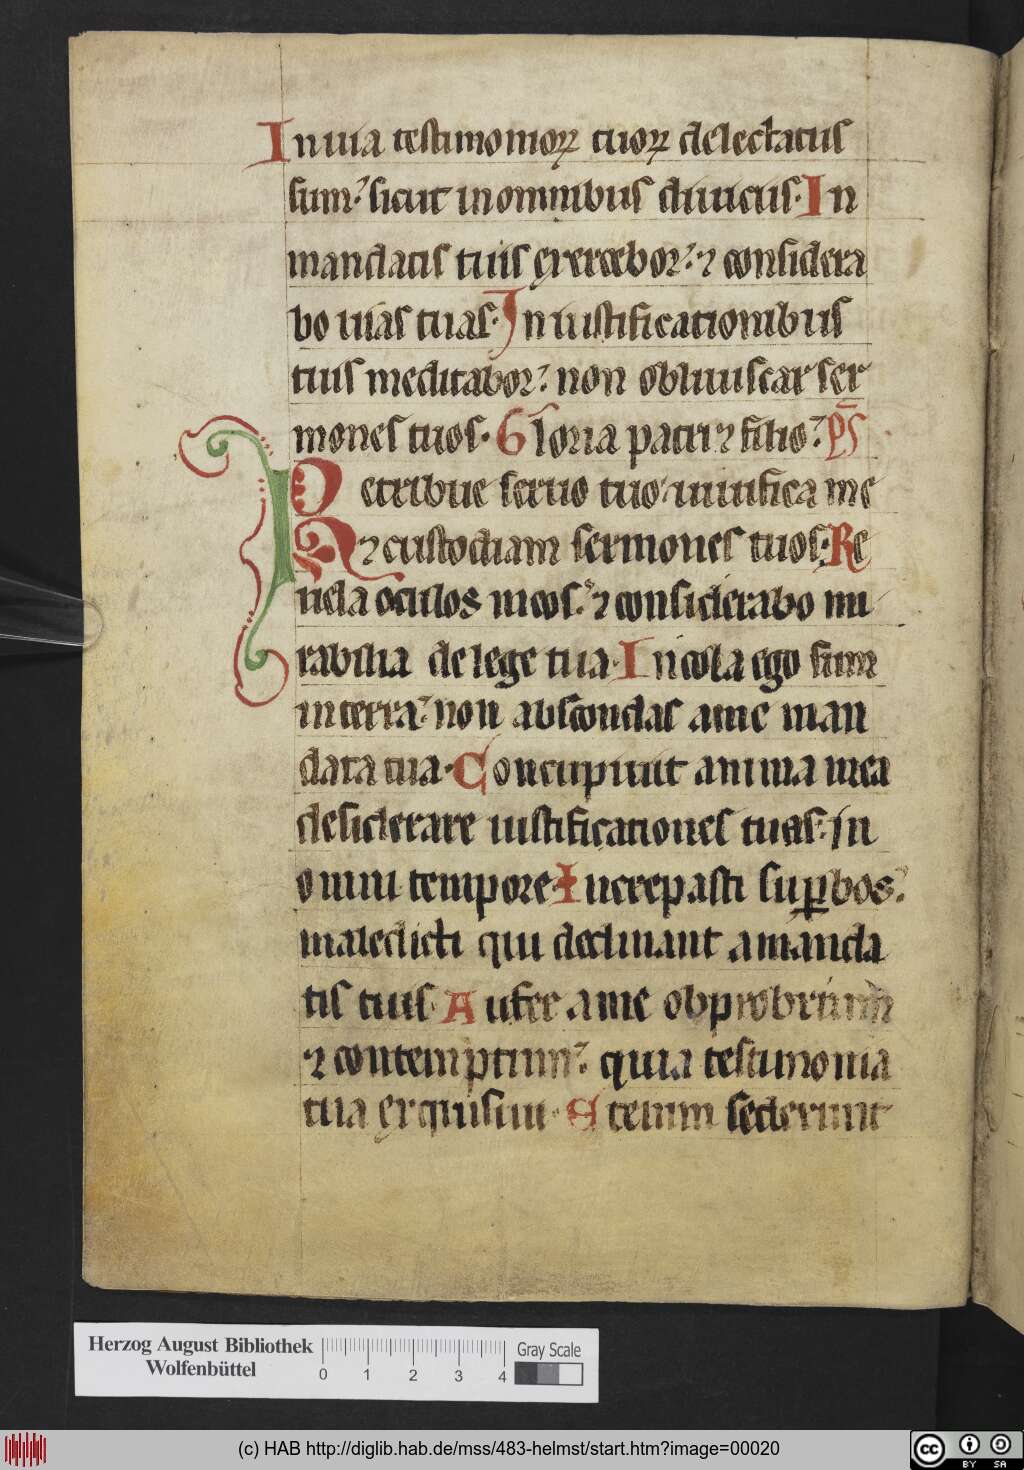 In uia testimonioꝝ tuoꝝ delectatus
sum. sicut in omnibus diuiciis. In
mandatis tuis exercebor. ⁊ considera
bo uias tuas. In iustificationibus
tuis meditabor. non obliuiscar ser
mones tuos. Gloria patri ⁊ filio. p̄s
Retribue seruo tuo uiuifica me
⁊ custodiam sermones tuos. Re
uela oculos meos. ⁊ considerabo mi
rabilia de lege tua. Incola ego sum
in terra. non abscondas a me man
data tua. Concupiuit anima mea
desiderare iustificationes tuas. in
omni tempore. Increpasti suꝑbos.
maledicti qui declinant a manda
tis tuis. Aufer a me obprobrium
⁊ contemptum. quia testimonia
tua exquisiui. Etenim sederunt
Herzog August Bibliothek
Wolfenbüttel
0 1 2 3 4
Gray Scale
(c) HAB http://diglib.hab.de/mss/483-helmst/start.htm?image=00020
cc BY SA